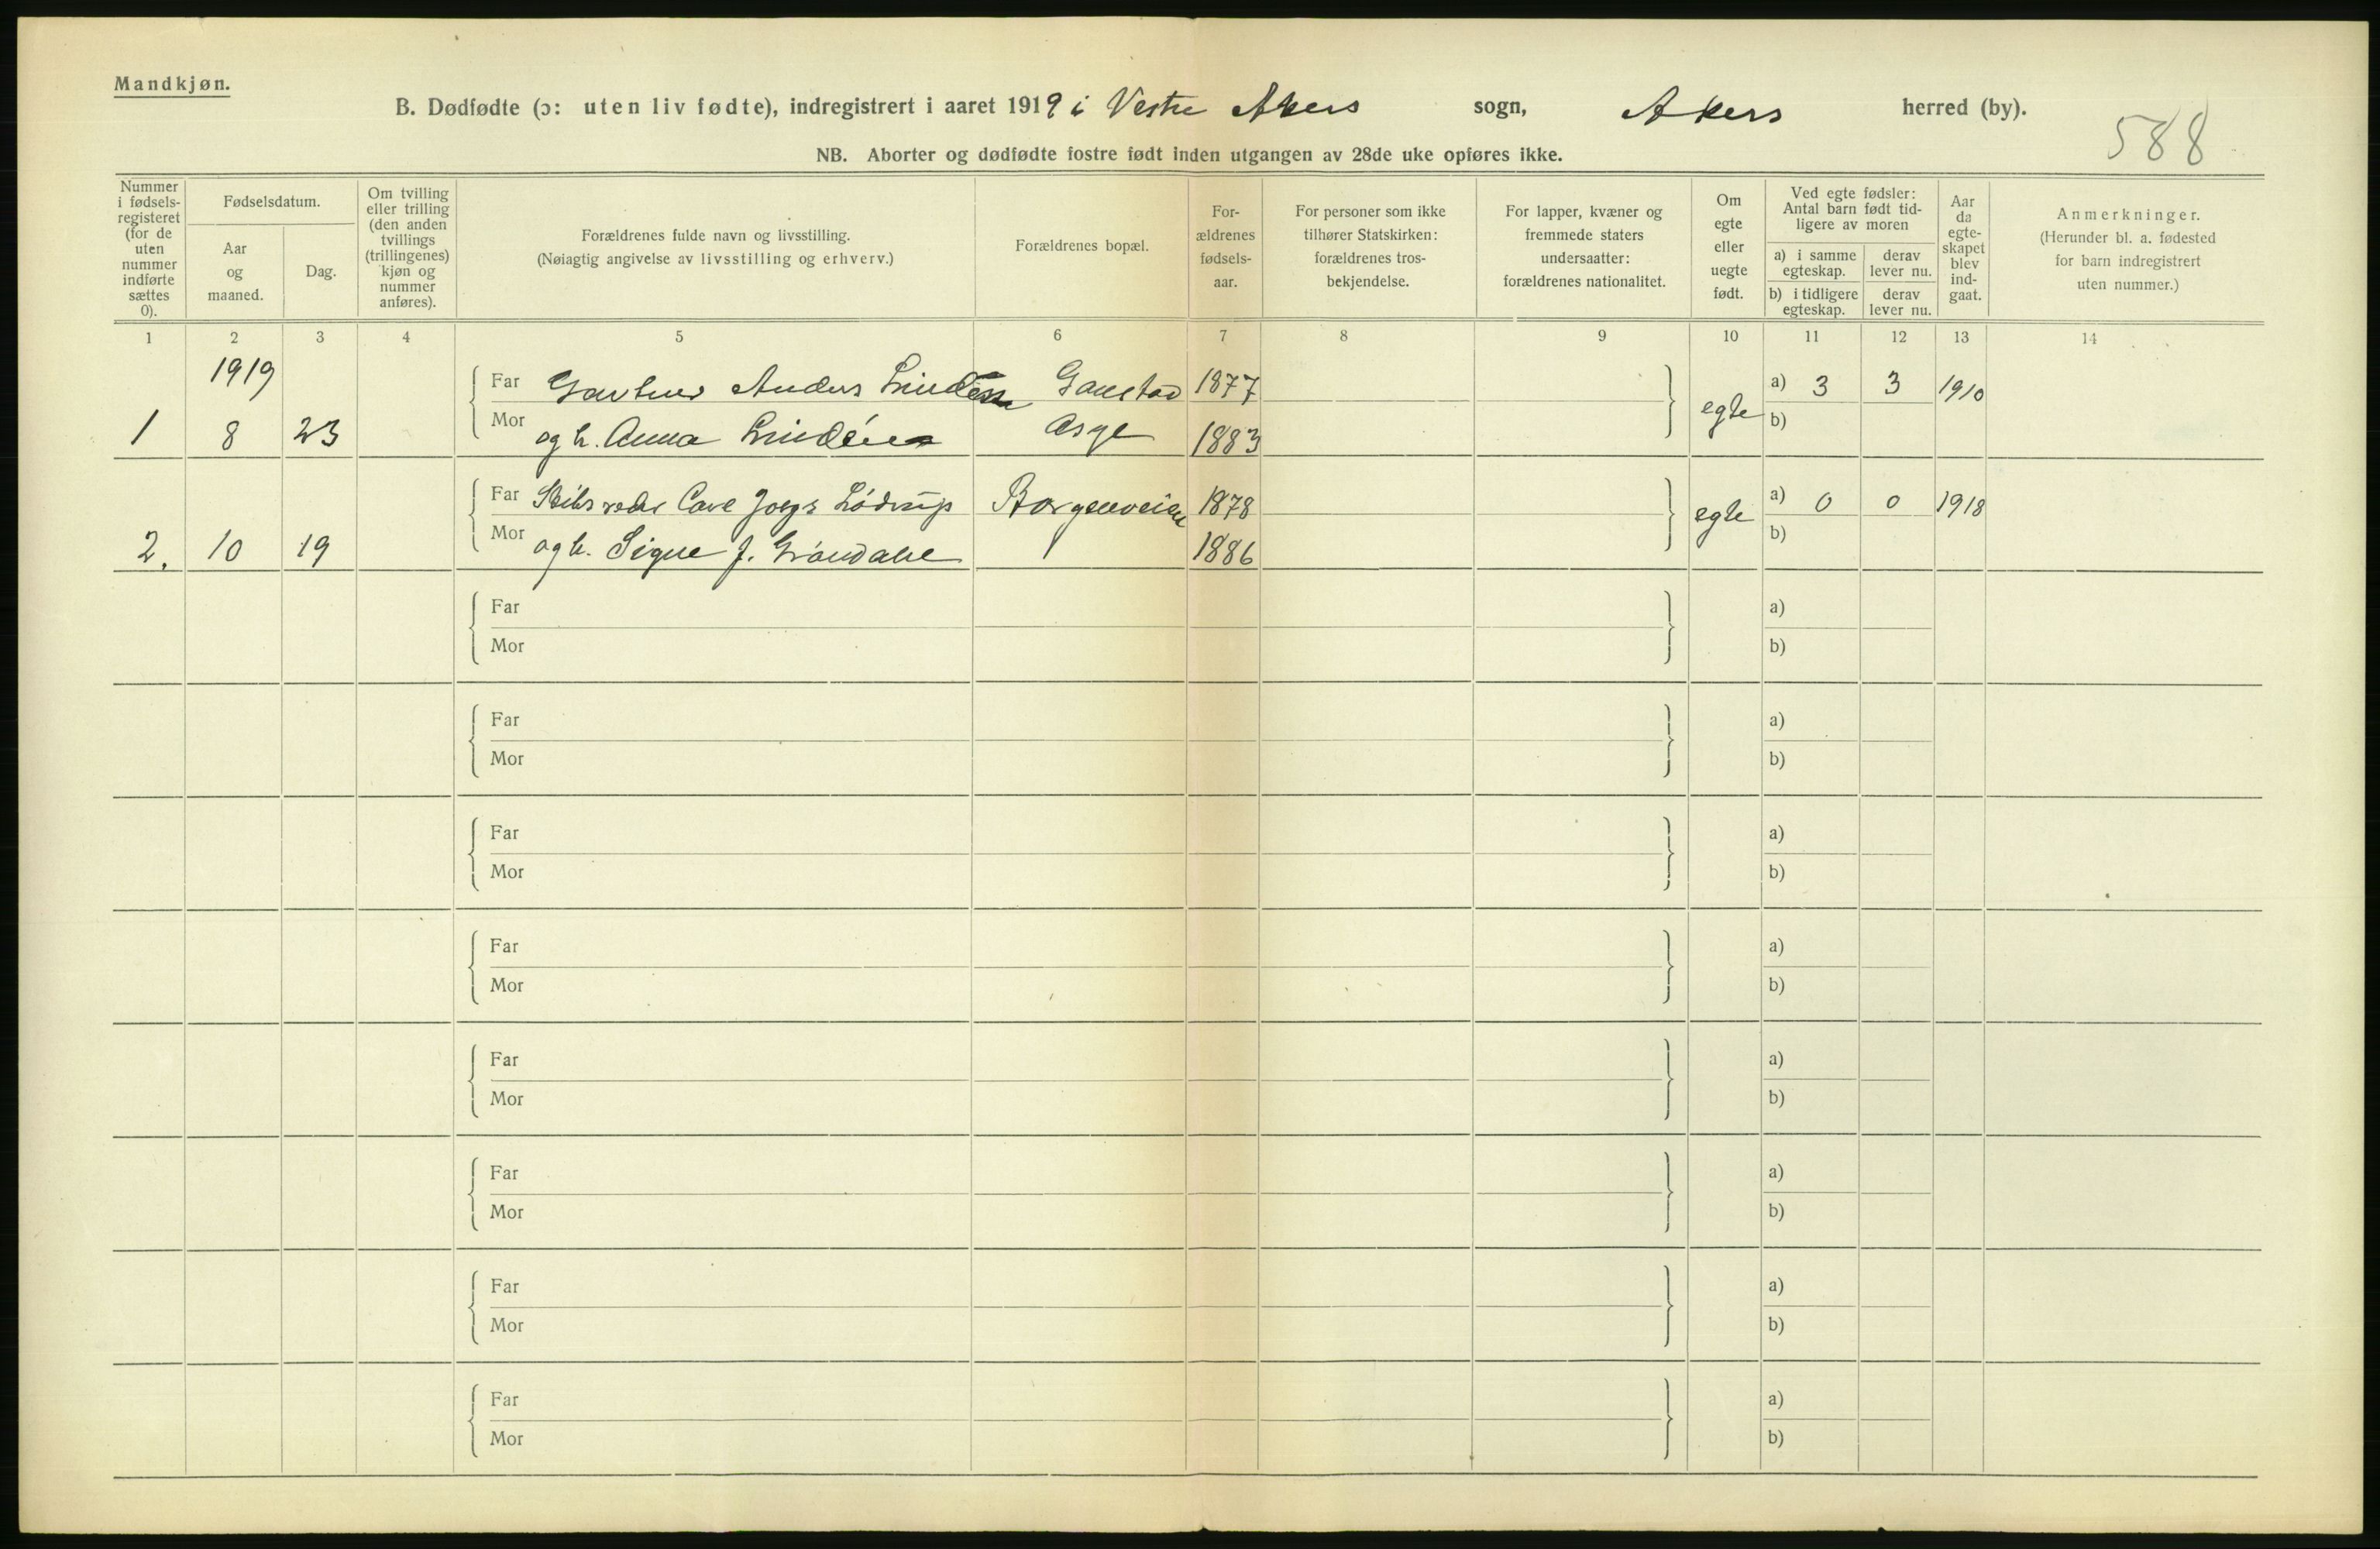 Mandkjøn.
B. Dødfødte (ɔ: uten liv fødte), indregistrert i aaret 1919 i Vestre Akers sogn, Akers herred (by).
588
NB. Aborter og dødfødte fostre født inden utgangen av 28de uke opføres ikke.
Nummer i fødsels-registeret (for de uten nummer indførte sættes 0).
Fødselsdatum.
Aar og maaned.
Dag.
Om tvilling eller trilling (den anden tvillings (trillingenes) kjøn og nummer anføres).
Forældrenes fulde navn og livsstilling.
(Nøiagtig angivelse av livsstilling og erhverv.)
Forældrenes bopæl.
For-ældrenes fødsels-aar.
For personer som ikke tilhører Statskirken: forældrenes tros-bekjendelse.
For lapper, kvæner og fremmede staters undersaatter: forældrenes nationalitet.
Om egte eller uegte født.
Ved egte fødsler: Antal barn født tid-ligere av moren
a) i samme egteskap.
derav lever nu.
b) i tidligere egteskap.
derav lever nu.
Aar da egte-skapet blev ind-gaat.
Anmerkninger.
(Herunder bl. a. fødested for barn indregistrert uten nummer.)
1 2 3 4 5 6 7 8 9 10 11 12 13 14
1919
Far Gartner Anders Lindén Gaustad 1877 a) 3 3 1910
1 8 23 Mor og h. Anna Lindén Asyl 1883 egte b)
Far Skibsreder Carl Joeps Lødrup Borgenveien 1878 a) 0 0 1918
2. 10 19 Mor og h. Signe J. Grøndahl 1886 egte b)
Far a)
Mor b)
Far a)
Mor b)
Far a)
Mor b)
Far a)
Mor b)
Far a)
Mor b)
Far a)
Mor b)
Far a)
Mor b)
Far a)
Mor b)